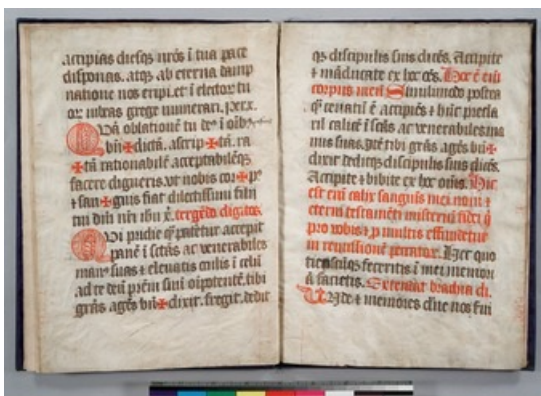 accipias diesqꝫ nr̄os ī tua pace
disponas. atqꝫ ab eterna damp
natione nos eripi. et ī electoꝝ tu
oꝝ iubeas grege numerari.
Quā oblationē tu deꝰ ī oīb
bn̄✠dictā. ascrip✠tā. ra
✠tā rationabilē acceptabilēqꝫ
facere digneris. vt nobis cor✠pꝰ
⁊ san✠guis fiat dilectissimi filii
tui dn̄i nr̄i ihū x̄. tergēdo digitos
Qui pridie q̄ pateretur accepit
panē ī sctās ac venerabiles
manꝰ suas ⁊ eleuatis oculis ī celū
ad te deū p̄rem suū oīpotentē. tibi
grās agēs bn̄✠dixit. fregit. dedit
qꝫ discipulis suis dicēs. Accipite
⁊ māducate ex hoc oēs. Hoc ē enī
corpus meū Simili modo postea
q̄ cenatū ē accipiēs ⁊ hūc precla
rū calicē ī sctās ac venerabiles ma
nus suas. itē tibi grās agēs bn̄✠
dixit deditqꝫ discipulis suis dicēs.
Accipite ⁊ bibite ex hoc oms. Hic
est eni calix sanguīs mei noui ⁊
eterni testamēti misteriū fidei q̄
pro vobis ⁊ ꝓ multis effundetur
in remissionē peccatoꝝ. Hec quo
tienscūqꝫ feceritis ī mei memori
ā facietis. Extendat brachia di.
Unde ⁊ memores dn̄e nos tui